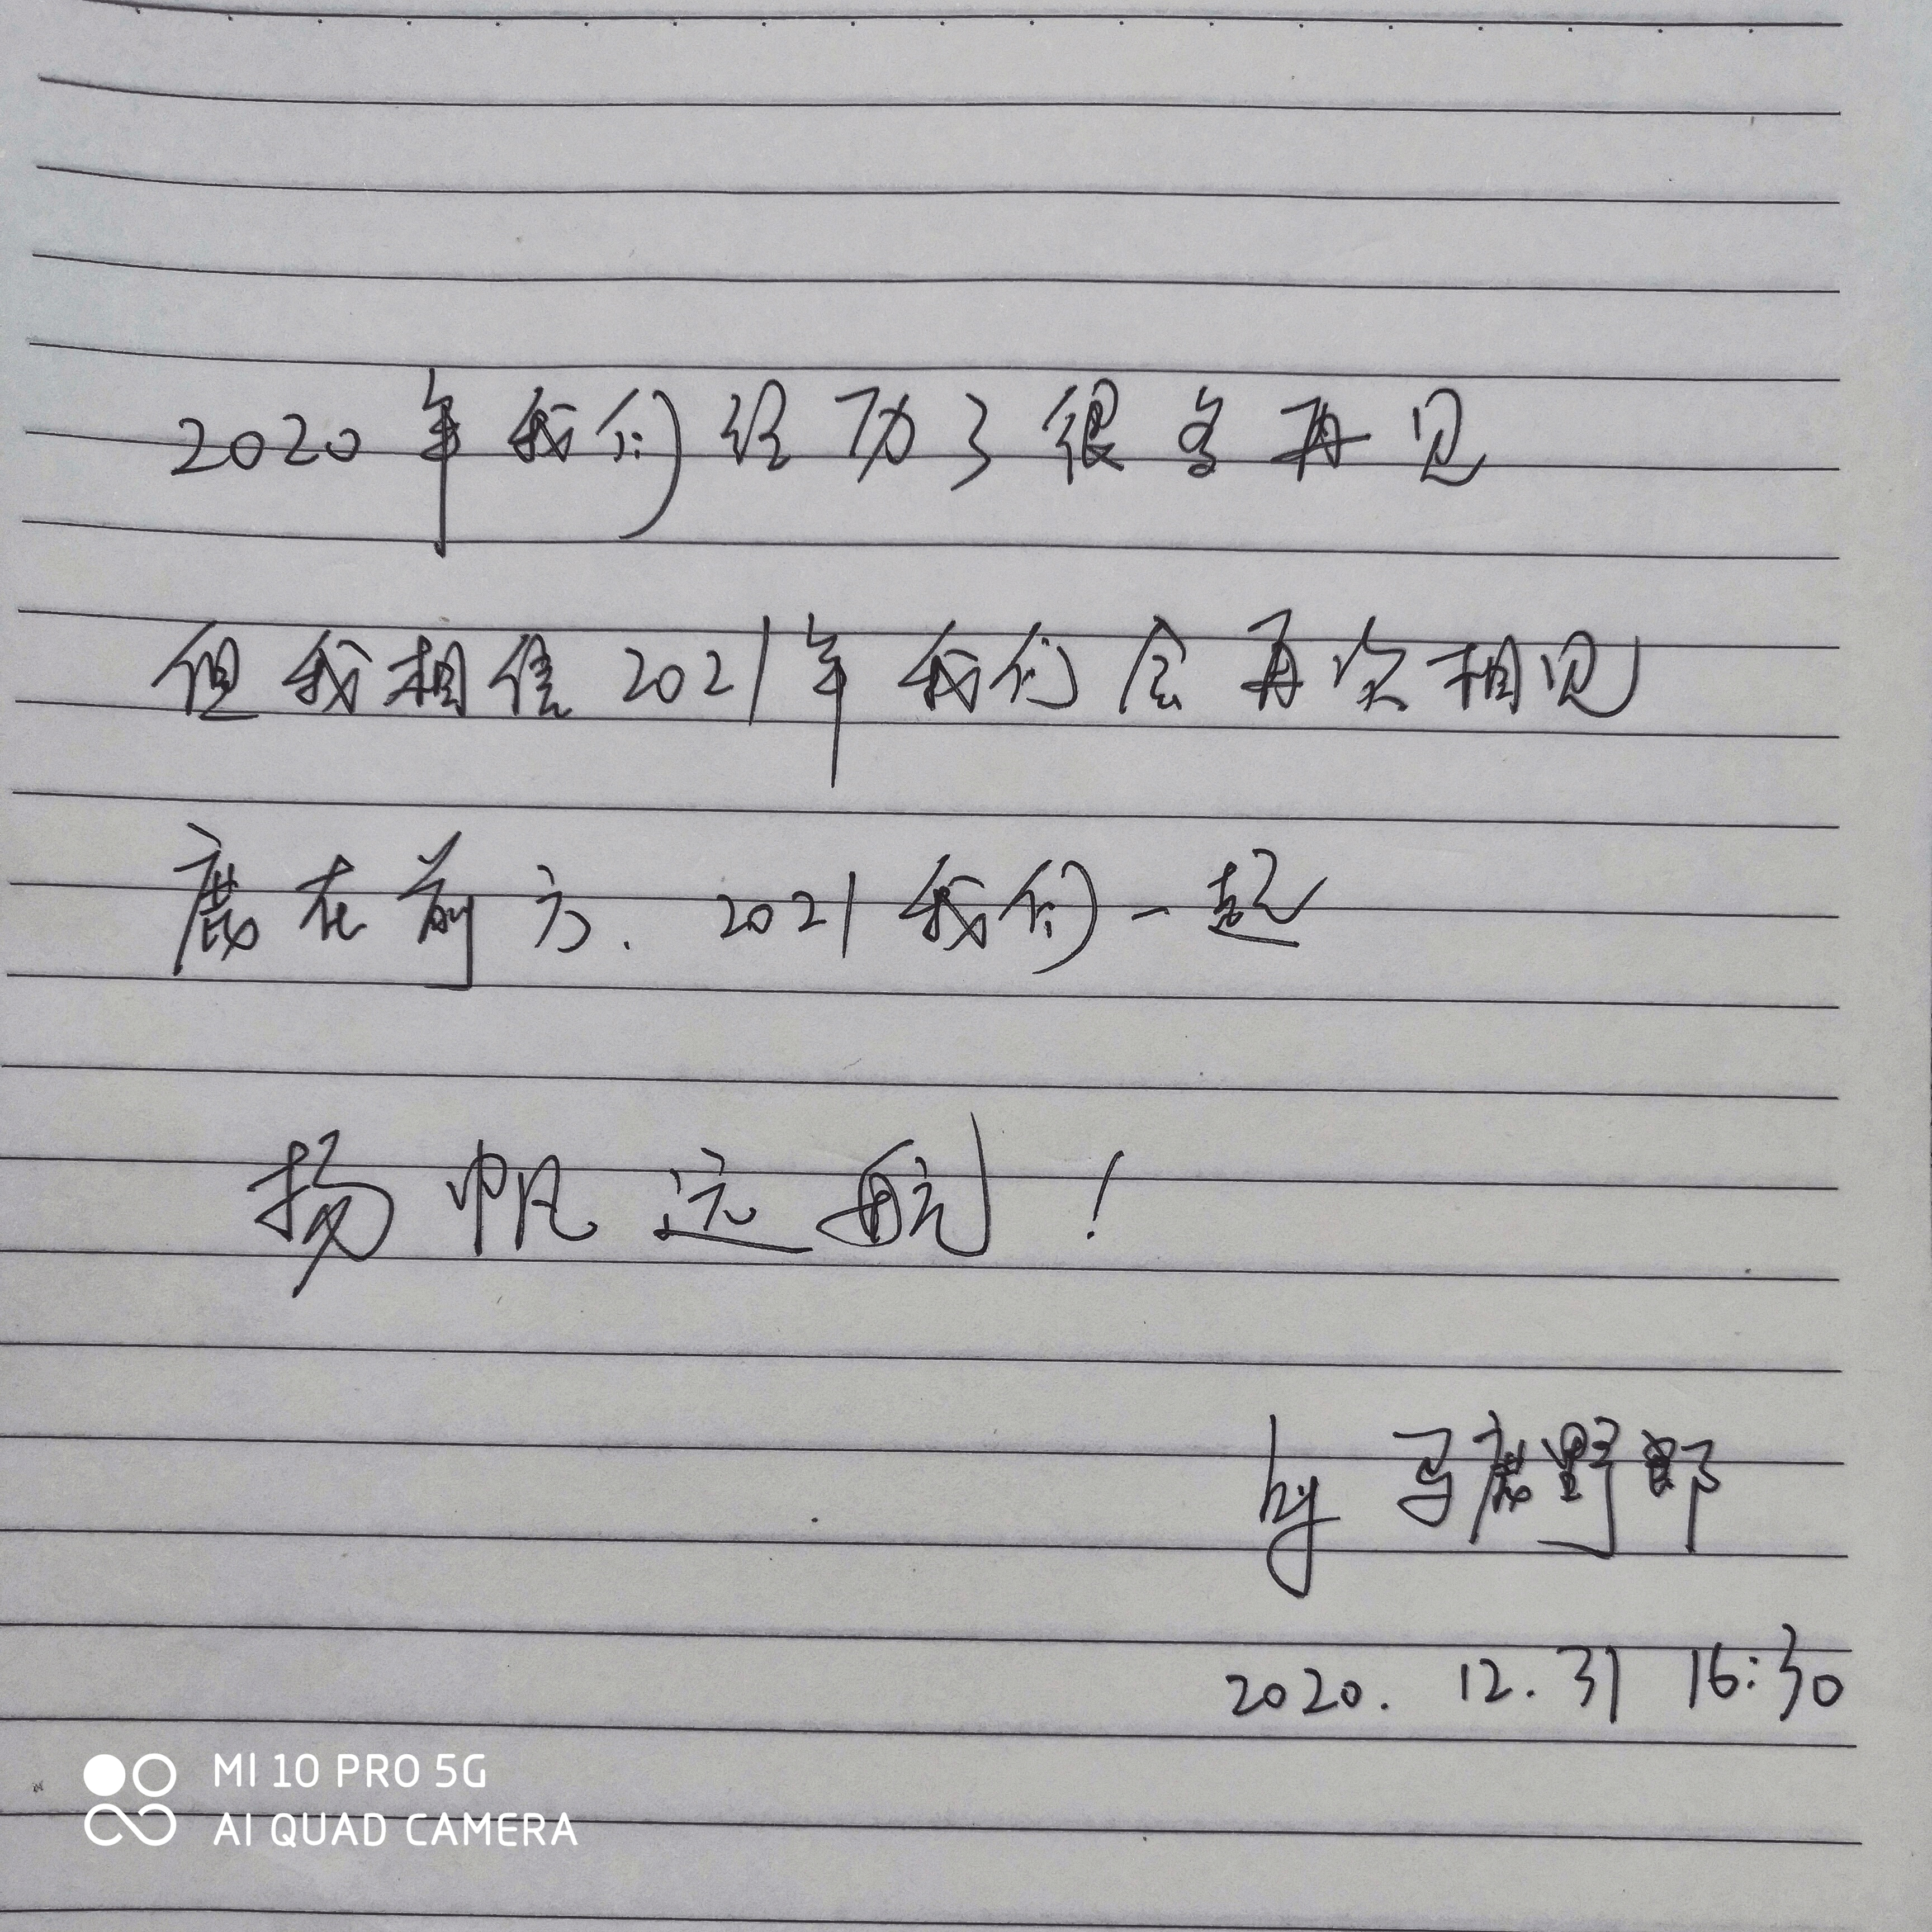 2020年我们经历了很多再见
但我相信2021年我们会再次相见
鹿在前方.2021我们一起
扬帆远航!
by 马鹿野郎
2020.12.31 16:30
MI 10 PRO 5G
AI QUAD CAMERA